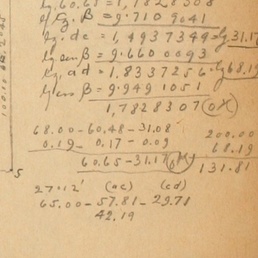 lg. 60.65 = 1,7828308
ctg. β = 9.7109041
lg. dc = 1,4937349 = lg 31.17
lg sen β = 9.6600093
lg. ad = 1,8337256 = lg 68.19
lg cos β = 9.9491051
1,7828307 (OK)
68.00 - 60.48 - 31.08
0.19 - 0.17 - 0.09
60.65 - 31.17 OK
200.00
68.19
131.81
5
27°12' (ac) (cd)
65.00 - 57.81 - 29.71
42.19